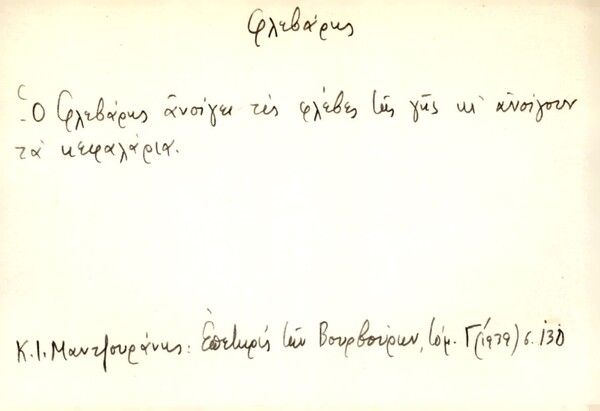 Φλεβάρης
-Ὁ Φλεβάρης ἀνοίγει τὶς φλέβες τῆς γῆς κι' ἀνοίγουν
τὰ κεφαλάρια.
Κ.Ι. Μαντζουράνης: Ἐπετηρὶς τῶν Βουρβούρων, τόμ. Γ΄(1939) σ. 130